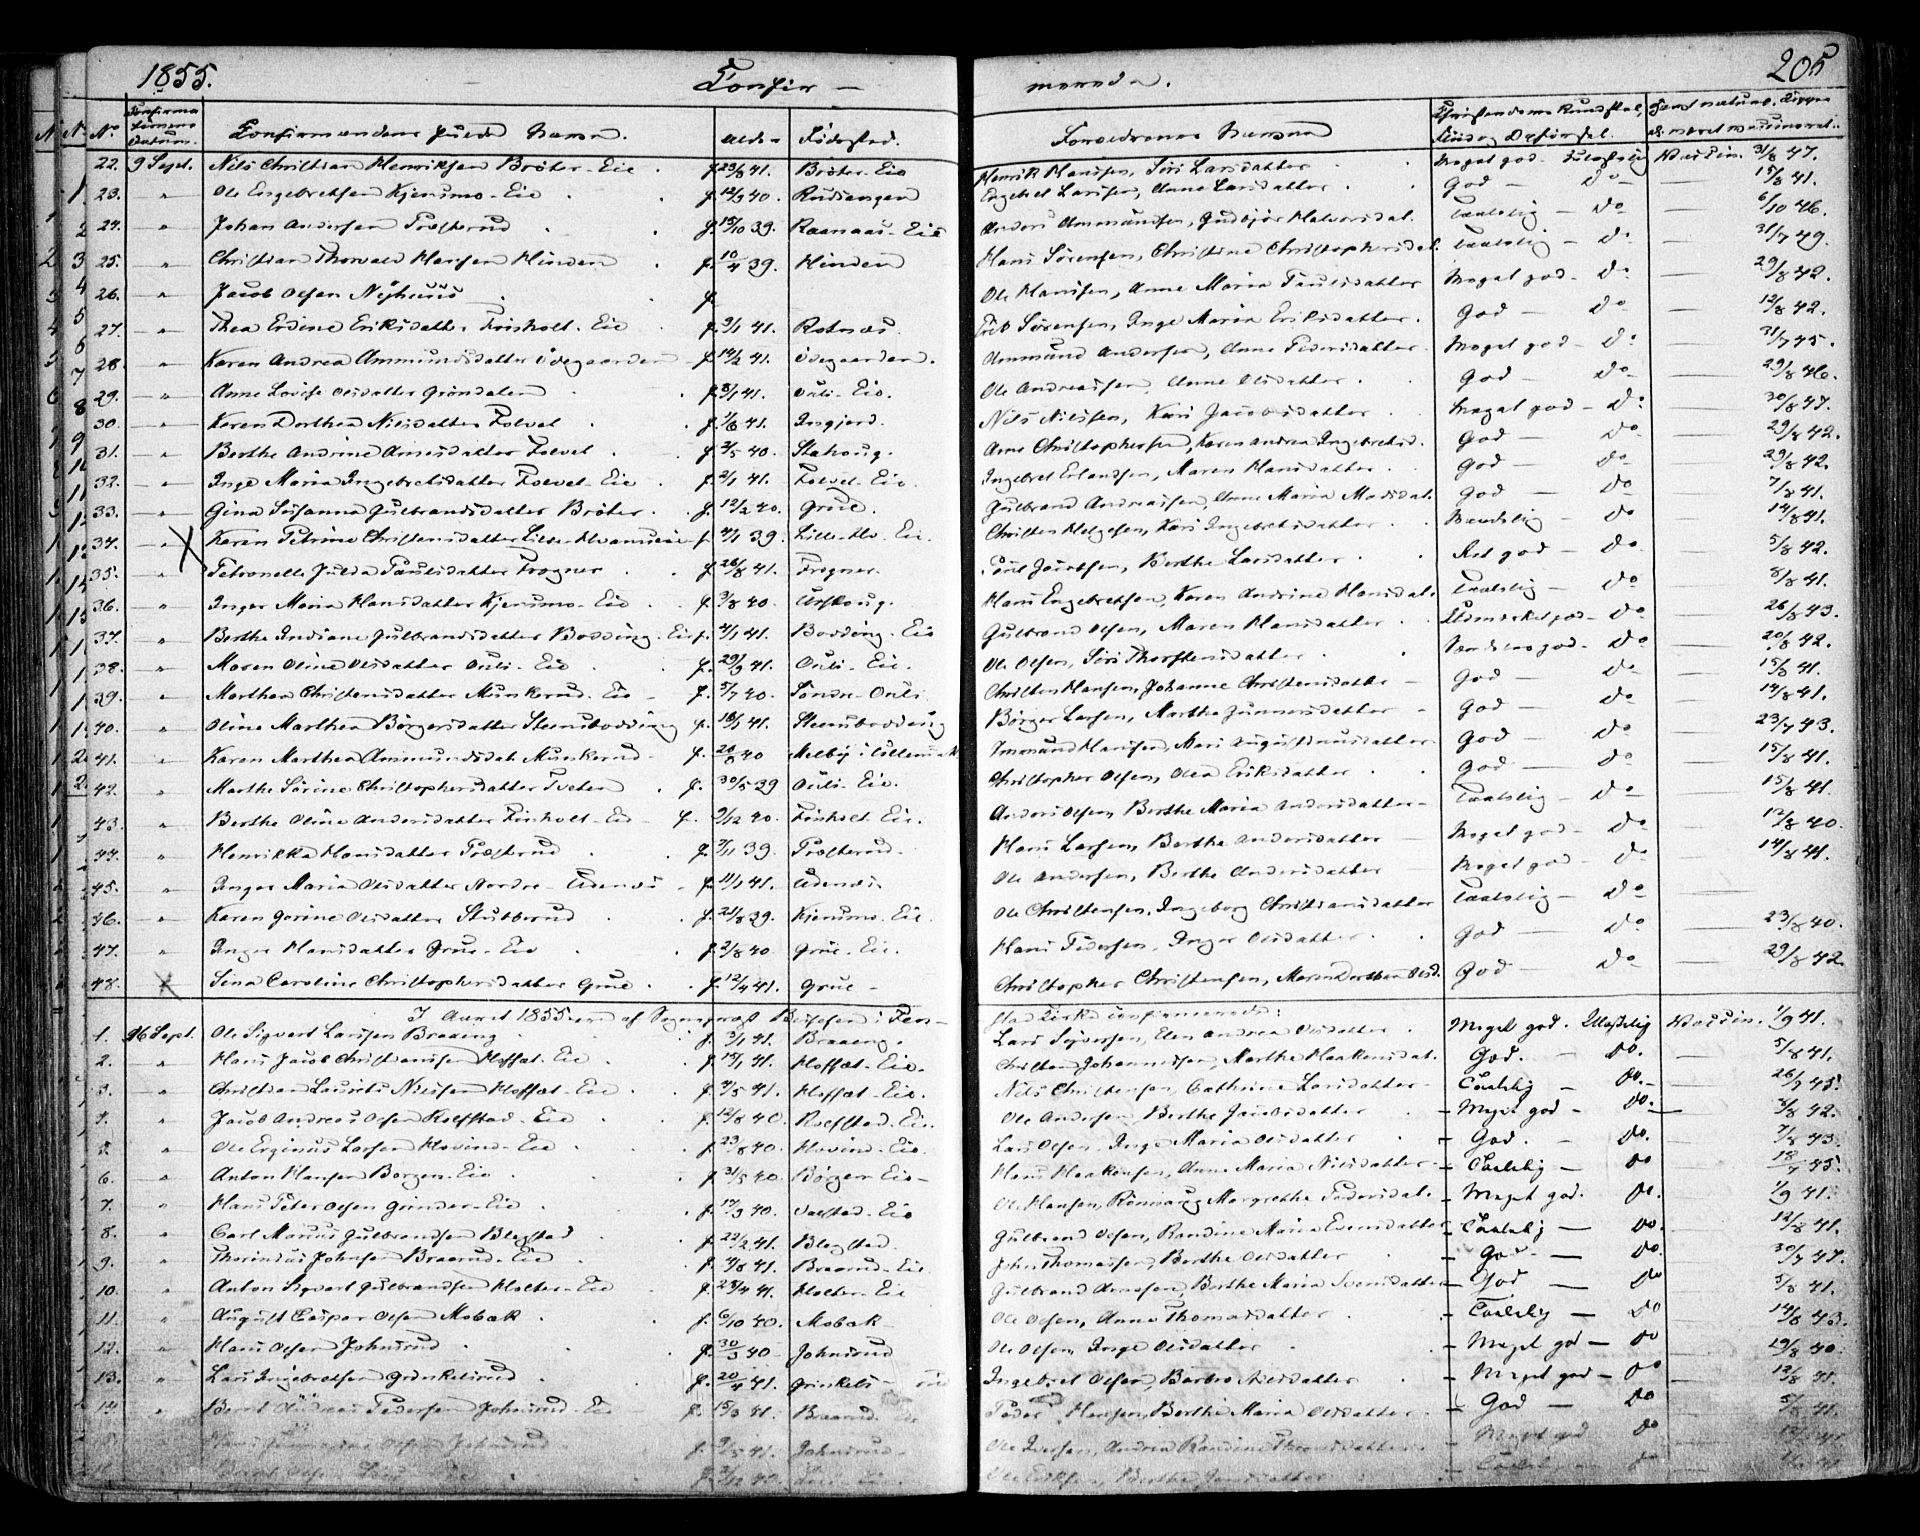 1855.
Confir-
merede.
205
No.
Confirma-
tionens
Datum.
Confirmandens fulde Navn.
Alder
Födested.
Forældrenes Navne
22. 9 Sept. Nils Christian Henriksen Bröter-Eie f. 23/8 41. Bröter-Eie Henrik Hansen, Siri Larsdatter Meget god- Udeslig Vaccin. 31/8 47.
23. " Ole Engebretsen Kjensmo-Eie f. 12/9 40. Rudsengen Engebret Larsen, Anne Larsdatter God - Do 15/8 41.
24. " Johan Andersen Præsterud f. 15/10 39. Raanaas-Eie Anders Ammundsen, Gudbjör Halvorsdat. Taalelig - Do 6/10 46.
25. " Christian Thorvald Hansen Hinden f. 10/4 39. Hinden Hans Sörensen, Christine Christophersdat. Taalelig - Do 31/7 49.
26. " Jacob Olsen Nyhuus f. Ole Hansen, Anne Maria Paulsdatter Meget god- Do 29/8 42.
27. " Thea Erdine Eriksdatter Frisholt-Eie f. 9/1 41. Rotnes. Erik Sörensen, Inge Maria Eriksdatter. God - Do 12/8 42.
28. " Karen Andrea Ammundsdatter Ödegaarden f. 14/2 41. Ödegaarden. Ammund Andersen, Anne Pedersdatter Meget god- Do 31/7 45.
29. " Anne Lovise Olsdatter Gröndalen f. 8/1 41. Ouli-Eie. Ole Andreassen, Anne Olsdatter. God - Do 29/8 46.
30. " Karen Dorthea Nilsdatter Folvel f. 1/6 41. Ingjerd. Nils Nilsen, Kari Jacobsdatter Meget god- Do 30/8 47.
31. " Berthe Andrine Arnesdatter Folvel f. 2/5 40. Stakoug. Arne Christophersen, Karen Andrea Ingebretsd. God - Do 29/8 42.
32. " Inge Maria Ingebretsdatter Folvel-Eie f. 2/1 41. Folvel-Eie Ingebret Erlandsen, Maren Hansdatter God - Do 29/8 42.
33. " Gina Susanna Gulbrandsdatter Bröter f. 12/2 40. Grue. Gulbrand Andreassen, Anne Maria Madsdat. God - Do 7/8 41.
34. " Karen Petrine Christensdatter Lille-Hvamseie f. 4/1 39 Lille-Hv. Eie. Christen Helgesen, Kari Ingebretsdatter Maadelig - Do 14/8 41.
35. " Petronelle Julda Paulsdatter Frogner f. 26/8 41. Frogner. Poul Jacobsen, Berthe Larsdatter Ret god - Do 5/8 42.
36. " Inger Maria Hansdatter Kjensmo-Eie f. 3/8 40. Aurskoug. Hans Engebretsen, Karen Andrine Hansdat. Taalelig - Do 8/8 41.
37. " Berthe Indiane Gulbrandsdatter Bodding-Eie f. 4/1 41. Bodding-Eie Gulbrand Olsen, Maren Hansdatter Udmærket god- Do 26/8 43.
38. " Maren Oline Olsdatter Ouli-Eie f. 29/3 41. Ouli-Eie. Ole Olsen, Siri Thorstensdatter Do 20/8 42.
39. " Marthea Christensdatter Munkerud-Eie f. 5/7 40. Söndre-Ouli Christen Hansen, Johanne Christensdatter God - Do 15/8 41.
40. " Oline Marthea Börgersdatter Steensbodding f. 18/1 41. Steensbodding Börger Larsen, Marthe Gunnersdatter God - Do 14/8 41.
41. " Karen Marthea Ammundsdat. Munkerud f. 20/8 40 Melby i Ullensak. Ammund Hansen, Mari Augustinusdatter God - Do 23/7 43.
42. " Marthe Sörine Christophersdatter Tveter f. 30/5 39 Ouli-Eie. Christopher Olsen, Olea Eriksdatter God - Do 15/8 41.
43. " Berthe Oline Andersdatter Frisholt-Eie f. 9/12 40. Frisholt-Eie. Anders Olsen, Berthe Maria Andersdatter Taalelig - Do 15/8 41.
44. " Henrikka Hansdatter Præsterud f. 2/11 39. Præsterud. Hans Larsen, Berthe Andersdatter Meget god- Do 12/8 40.
45. " Inger Maria Olsdatter Nordre-Asenæs f. 11/1 41. Ole Andersen, Berthe Andersdatter Meget god- Do 14/8 41.
46. " Karen Gorine Olsdatter Stubberud f. 21/8 39. Kjensmo-Eie. Ole Christensen, Ingeborg Christiansdatter Taalelig - Do
47. " Inger Hansdatter Grue-Eie f. 2/8 40 Grue-Eie. Hans Pedersen, Inger Olsdatter. God - Do 23/8 40.
48. Sina Caroline Christophersdatter Grue f. 12/4 41. Grue- Christopher Christensen, Maren Dorthea Olsd. God - Do 29/8 42.
I Aaret 1855 ere af Sognepræst i Fen-
stad Kirke confirmerede:
1. 26 Sept. Ole Sigvart Larsen Braaeng f. 3/1 41. Braaeng. Lars Syversen, Elen Andrea Olsdatter Meget god. Udeslig Vaccin. 1/9 41.
2. " Hans Jacob Christensen Hoffat-Eie f. 15/1 41. Hoffat-Eie. Christen Johannessen, Marthe Haakensdat. God. - Do. 5/8 41.
3. " Christian Lauritz Nilsen Hoffat-Eie f. 4/5 41. Hoffat-Eie. Nils Christensen, Cathrine Larsdatter Taalelig - Do. 26/7 45.
4. " Jacob Andreas Olsen Rolfstad-Eie f. 12/8 40. Rolfstad-Eie. Ole Andersen, Berthe Jacobsdatter - Meget god - Do. 3/8 42.
5. " Ole Erginus Larsen Hovind-Eie f. 23/8 40. Hovind-Eie. Lars Olsen, Inge Maria Olsdatter - God. Do. 7/8 43.
6. " Anton Hansen Borgen-Eie f. 31/5 40. Börgen-Eie- Hans Haakensen, Anne Maria Nilsdatter - Taalelig - Do 18/7 45.
7. " Hans Peter Olsen Grinder-Eie f. 17/3 40. Valstad-Eie Ole Hansen, Rönnaug Margrethe Pedersdat. - Meget god. Do. 1/9 41.
8. " Carl Maurus Gulbrandsen Blegstad f. 22/2 41. Blegstad. Gulbrand Olsen, Randine Maria Evensdatter - Taalelig - Do. 12/8 41.
9. " Thorinius Johnsen Braarud-Eie f. 4/8 41. Braarud-Eie. John Thomassen, Berthe Olsdatter - God - Do. 30/7 47.
10. " Anton Sigvart Gulbrandsen Holter-Eie f. 28/4 41. Holter-Eie Gulbrand Arnesen, Berthe Maria Svensdatter - God - Do 5/8 41.
11. " August Casper Olsen Mobæk. f. 6/10 40. Mobæk Ole Olsen, Anne Thomasdatter - Taalelig - Do 14/8 43.
12. " Hans Olsen Johnsrud f. 30/3 40 Johnsrud Ole Olsen, Inge Olsdatter - Meget god - Do 19/8 40.
13. " Lars Ingebretsen Grinkelsrud f. 20/4 41. Grinkels- Ingebret Olsen, Barbro Nilsdatter - Meget god - Do 12/8 41.
14. " Bernt Andreas Pedersen Johnsrud-Eie f. 15/3 41. Braarud Peder Hansen, Berthe Maria Olsdatter - God - Do 5/8 41.
Olsen Johnsrud f. 9/5 41. Johnsrud- Ole Iversen, Andrea Randine Thronsdatter - Meget god Do
Bernt Olsen f. 2/12 40. Ole Eriksen, Berthe Jensdatter - Taalelig - Do